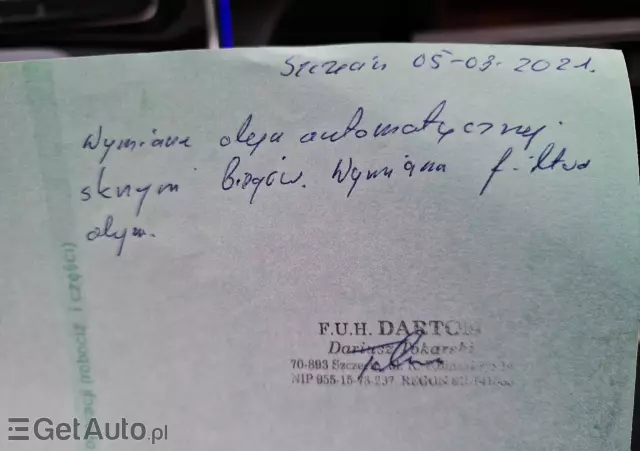 Szczecin 05-03-2021.
Wymiana oleju automatycznej
skrzyni biegów. Wymiana filtra
oleju.
F.U.H. DARTOM
Dariusz Tokarski
70-893 Szczecin, ul. K.
NIP 955-15-73-237, REGON
i części)
GetAuto.pl